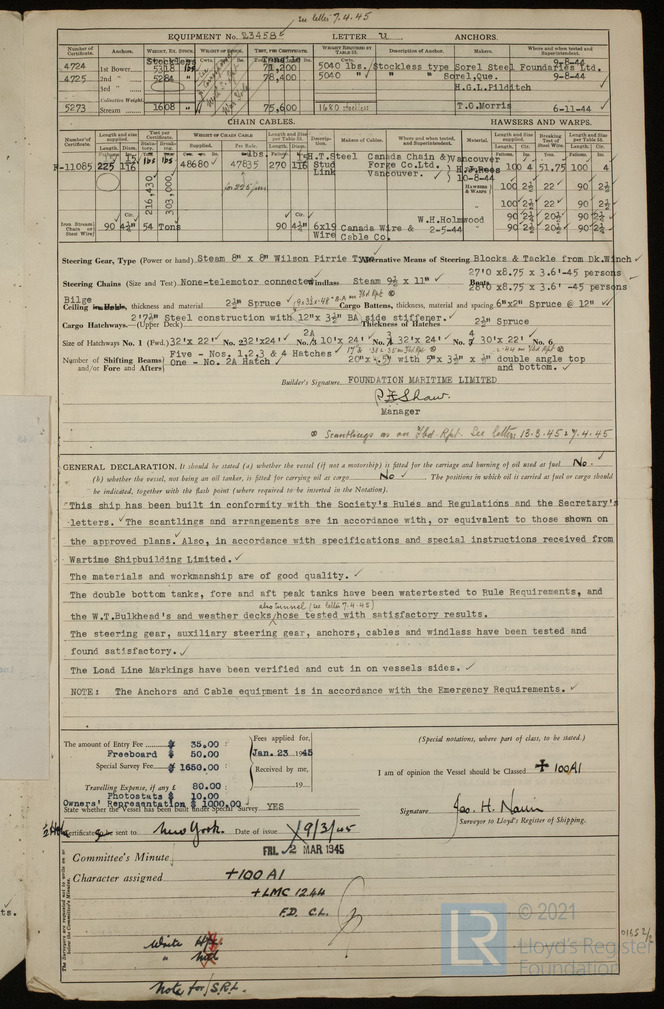 See letter 7.4.45
EQUIPMENT No. 23458 LETTER u ANCHORS.
Number of Certificate. Anchors. WEIGHT, EX. STOCK. WEIGHT OF STOCK. TEST, PER CERTIFICATE. WEIGHT REQUIRED BY TABLE 53. Description of Anchor. Makers. Where and when tested and Superintendent.
4724 1st Bower Stockless 5318 lbs 71,200 5040 lbs. Stockless type Sorel Steel Foundaries Ltd. 9-8-44
4725 2nd " 5284 " 78,400 5040 " " " Sorel, Que. 9-8-44
3rd " H.G.L. Pilditch
Collective Weight
5273 Stream 1608 " 75,600 1680 stockless T.O. Morris 6-11-44
CHAIN CABLES. HAWSERS AND WARPS.
Number of Certificate. Length and size supplied. Test per Certificate. WEIGHT OF CHAIN CABLE Length and Size per Table 53. Description. Makers of Cables. Where and when tested, and Superintendent. Material. Length and size supplied. Breaking Test of Steel Wire. Length and Size per Table 53.
F-11085 225 1 15/16 216,430 lbs 303,000 lbs 48680 47835 270 1 15/16 H.T. Steel Stud Link Canada Chain & Forge Co. Ltd. Vancouver. Vancouver 10-8-44 100 4 51.75 100 4
HAWSERS & WARPS 100 2½ 22 90 2½
" 100 2½ 22 90 2½
Iron Stream Chain or Steel Wire 90 4¼" 54 Tons 90 4¼" 6x19 Wire Canada Wire & Cable Co. W.H. Holmwood 2-5-44
Steering Gear, Type (Power or hand) Steam 8" x 8" Wilson Pirrie Type Alternative Means of Steering Blocks & Tackle from Dk. Winch
Steering Chains (Size and Test) None-telemotor connected Windlass Steam 9½ x 11" Boats 27'0 x8.75 x 3.6'-45 persons
28'0 x8.75 x 3.6' -45 persons
Bilge
Ceiling in Holds, thickness and material 2½" Spruce Cargo Battens, thickness, material and spacing. 6"x2" Spruce @ 12"
Cargo Hatchways.—(Upper Deck) 2'7½" Steel construction with 12"x 3½" BA side stiffener. Thickness of Hatches 2½" Spruce
Size of Hatchways No. 1 (Fwd.) 32'x 22' No. 2 32'x24' No. 2A 10'x 24' No. 3 32'x 24' No. 4 30'x 22' No. 6
Number of Shifting Beams and/or Fore and Afters Five - Nos. 1,2,3 & 4 Hatches
One - No. 2A Hatch 20"x .5" with 5"x 3½" x ½" double angle top and bottom.
Builder's Signature. FOUNDATION MARITIME LIMITED
R F Shaw.
Manager
⊗ Scantlings as on Fbd. Rpt. See letters 13.3.45 & 7.4.45
GENERAL DECLARATION. It should be stated (a) whether the vessel (if not a motorship) is fitted for the carriage and burning of oil used as fuel No.
(b) whether the vessel, not being an oil tanker, is fitted for carrying oil as cargo No. The positions in which oil is carried as fuel or cargo should
be indicated, together with the flash point (where required to be inserted in the Notation).
"This ship has been built in conformity with the Society's Rules and Regulations and the Secretary's
letters. The scantlings and arrangements are in accordance with, or equivalent to those shown on
the approved plans. Also, in accordance with specifications and special instructions received from
Wartime Shipbuilding Limited.
The materials and workmanship are of good quality.
The double bottom tanks, fore and aft peak tanks have been watertested to Rule Requirements, and
also tunnel (see letter 7.4.45)
the W.T. Bulkhead's and weather decks hose tested with satisfactory results.
The steering gear, auxiliary steering gear, anchors, cables and windlass have been tested and
found satisfactory.
The Load Line Markings have been verified and cut in on vessels sides.
NOTE: The Anchors and Cable equipment is in accordance with the Emergency Requirements.
The amount of Entry Fee $ 35.00
Freeboard $ 50.00
Special Survey Fee $ 1650.00
Travelling Expense, if any £ 80.00
Photostats $ 10.00
Owners' Representation $ 1000.00
Fees applied for, Jan. 23 1945
Received by me, 19
(Special notations, where part of class, to be stated.)
I am of opinion the Vessel should be Classed +100A1
State whether the Vessel has been built under Special Survey YES
Signature Jas. H. Nairn
Surveyor to Lloyd's Register of Shipping.
Certificate to be sent to New York. Date of issue 19/3/45
FRI. 2 MAR 1945
Committee's Minute
Character assigned +100 A1
+LMC 12.44
F.D. C.L.
Write
"
Note for S.R.L.
The Surveyors are requested not to write on or below the Committee's Minute.
ts.
01652/2
LR © 2021
Lloyd's Register
Foundation